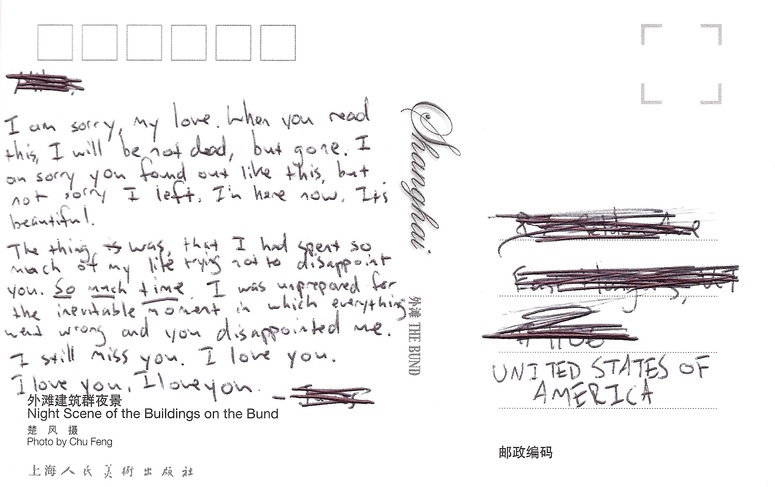 I am sorry, my love. When you read
this, I will be not dead, but gone. I
am sorry you found out like this, but
not sorry I left. I'm here now. Its
beautiful.
The thing was, that I had spent so
much of my life trying not to disappoint
you. So much time. I was unprepared for
the inevitable moment in which everything
went wrong and you disappointed me.
I still miss you. I love you.
I love you. I love you. -
外滩建筑群夜景
Night Scene of the Buildings on the Bund
楚 风 摄
Photo by Chu Feng
上海人民美術出版社
Shanghai
外滩 THE BUND
UNITED STATES OF
AMERICA
邮政编码